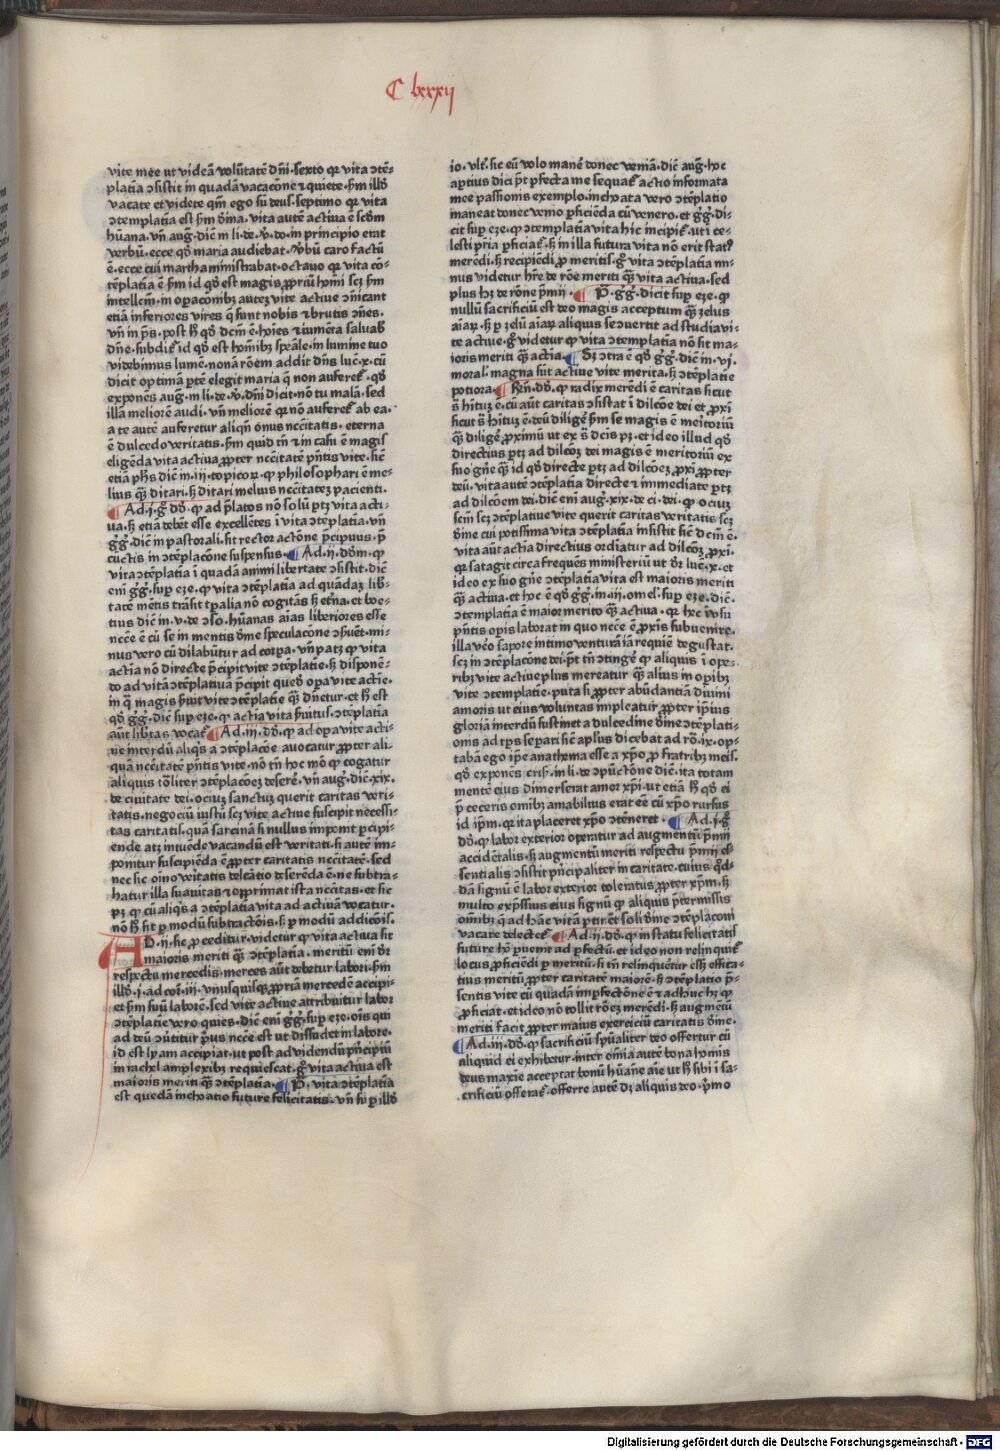 C lxxxij
vite mee ut videā volūtatē dñi · sexto qr vita ↄtē-
platīa ↄsistit in quadā vacacōne ⁊ quiete · ẜm illḋ
vacate et videte qm̄ ego sū deus · septimo qr vita
ↄtemplatīa est ẜm diīna · vita autē actīua ē scd̄m
hūana · vñ aug᷒ · diē m li · de · v · do · in principio erat
verbū · ecce qḋ maria audiebat · vbū caro factū
ē · ecce cui martha ministrabat · octauo qr vita cō-
tēplatīa ē ẜm id qḋ est magis ꝓpriū homi scꝫ ẜm
intellcm̄ · in opacōnibꝫ autez vite actīue ↄm̄icant
etiā inferiores vires q̄ sunt nobis ⁊ brutis ↄnes ·
vñ in p̄s · post h̄ qḋ dcm̄ ē · hoīes ⁊ iumēta saluab᷒
dñe · subdit᷒ id qḋ est homībꝫ speāle · in lumine tuo
videbimus lumē · nonā rōem addit dñs luc̄ · x · cū
dicit optimā ptē elegit maria q̄ non auferet᷒ · qḋ
exponēs aug᷒ · m li · de · v · dñi dicit · nō tu malā · sed
illā meliorē audi · vñ meliorē qr nō auferet᷒ ab ea ·
a te autē auferetur aliqñ onus nccitatis · eterna
ē dulcedo veritatis · ẜm quid tñ ⁊ in casu ē magis
eligēda vita actīua ꝓpter nccitatē p̄ntis vite · sic̄
etiā phs̄ diē m · iij · topicoꝝ · ꝙ philosophari ē me-
lius qᷓꝫ ditari · sꝫ ditari melius nccitatez pacienti ·
Ad · j · g̊ dḋ · ꝙ ad p̄latos nō solū ptꝫ vita acti-
ua · sꝫ etiā debēt esse excellētes ī vita ↄtēplatīa · vñ
g̊g̊ · diē in pastorali · sit rector actōne p̄cipuus · p̄
cūctis in ↄtēplacōne suspensus · Ad · ij · dḋm · ꝙ
vita ↄtēplatīa ī quadā animi libertate ↄsistit · diē
enī g̊g̊ · sup eze · ꝙ vita ↄtēplatīa ad quādaꝫ lib᷒-
tatē mētis trāsit tpalia nō cogitās sꝫ et᷒na · et boe-
tius diē in · v · de ↄso · hūanas aīas liberiores esse
ncc̄e ē cū se in mentis diīne speculacōne ↄẜuēt · mi-
nus vero cū dilabūtur ad corpa · vñ patꝫ ꝙ vita
actīa nō directe p̄cipit vite ↄtēplatīe · sꝫ disponē-
do ad vitā ↄtēplatiuā p̄cipit quedā opa vite actīe ·
in q̊ magis ẜuit vite ↄtēplatīe qᷓꝫ dñetur · et h̄ est
qḋ g̊g̊ · diē sup eze · ꝙ actīa vita ẜuitus · ↄtēplatīa
aūt libtas vocat᷒ Ad · iij · dḋ · ꝙ ad opa vite acti-
ue interdū aliqs a ↄtēplacōe auocatur ꝓpter ali-
quā nccitatē p̄ntis vite · nō tñ hoc mō ꝙ cogatur
aliquis tōliter ↄtēplacōez deserē · vñ aug᷒ · diē · xix ·
de ciuitate dei · ociū sanctū querit caritas veri-
tatis · negociū iustū scꝫ vite actīue suscipit necessi-
tas caritatis · quā sarcinā si nullus imponit pcipi-
ende atꝫ intuēde vacandū est veritati · si autē im-
ponitur suscipiēda ē ꝓpter caritatis nccitatē · sed
nec sic oīno veritatis delcātio deserēda ē · ne subtra-
hatur illa suauitas ⁊ opprimat ista nccitas · et sic
pꝫ ꝙ cū aliqs a ↄtēplatīa vita ad actīuā vocatur ·
nō h̄ sit p modū subtractōis · sꝫ p modū addicōis ·
AD · ij · sic ꝓceditur · videtur ꝙ vita actīua sit
maioris meriti qᷓꝫ ↄtēplatīa · meritū enī dr̄
respectu mercedis · merces aūt debetur labori · ẜm
illḋ · j · ad cor᷒ · iij · vnusquisqꝫ ꝓpriā mercedē accipi-
et ẜm suū laborē · sed vite actīue attribuitur labor
ↄtēplatīe vero quies · diē enī g̊g̊ · sup eze · oīs qui
ad deū ↄūtitur p̄us ncc̄e est ut dissudet in labore ·
id est lyam accipiat · ut post ad videndū p̄ncipiū
in rachel amplexibꝫ requiescat · g̊ vita actīua est
maioris meriti qᷓꝫ ↄtēplatīa · P · vita ↄtēplatīa
est quedā inchoatio future felicitatis · vñ sup illḋ
io · vlt̄ · sic eū volo manē donec veniā · diē aug᷒ · hoc
aptius dici p̄t pfecta me sequat᷒ actio informata
mee passionis exemplo · inchoata vero ↄtēplatio
maneat donec venio pficiēda cū venero · et g̊g̊ · di-
cit sup eze · ꝙ ↄtemplatīa vita hic incipit᷒ · ut ī ce-
lesti pria pficiat᷒ · sꝫ in illa futura vita nō erit stat᷒
merēdi · sꝫ recipiēdi ꝓ meritis · g̊ vita ↄtēplatīa mi-
nus videtur hr̄e de rōe meriti qᷓꝫ vita actīua · sed
plus hꝫ de rōne p̄mij · P · g̊g̊ · dicit sup eze · ꝙ
nullū sacrificiū est deo magis acceptum qᷓꝫ zelus
aīaꝝ · sꝫ p zelū aīaꝝ aliquis se ↄuertit ad studia vi-
te actīue · g̊ videtur ꝙ vita ↄtēplatīa nō sit ma-
ioris meriti qᷓꝫ actīa · Sꝫ ↄtra ē qḋ g̊g̊ · diē m · vj ·
moral᷒ · magna sūt actīue vite merita · sꝫ ↄtēplatīe
potiora · Rn̄ · dḋ · ꝙ radix merēdi ē caritas sicut
s̄ hituꝫ ē · cū aūt caritas ↄsistat ī dilcōe dei et ꝓxī
sicut s̄ hituꝫ ē · deū diligē ẜm se magis ē meritoriū
qᷓꝫ diligē ꝓximū ut ex s̄ dcis pꝫ · et ideo illud qḋ
directius ptꝫ ad dilcōꝫ dei magis ē meritoriū ex
suo gn̄e qᷓꝫ id qḋ directe ptꝫ ad dilcōez ꝓxi ꝓpter
deū · vita autē ↄtēplatīa directe ⁊ immediate ptꝫ
ad dilcōem dei · diē enī aug᷒ · xix · de ci · dei · ꝙ ociuꝫ
scm̄ scꝫ ↄtēplatīue vite querit caritas veritatis scꝫ
diīne cui potissima vita ↄtēplatīa insistit sic̄ dcm̄ ē ·
vita aūt actīa directius ordīatur ad dilcōꝫ ꝓxi ·
qr satagit circa frequēs ministeriū ut dr̄ luc̄ · x · et
ideo ex suo gn̄e ↄtēplatīa vita est maioris meriti
qᷓꝫ actīua · et hoc ē qḋ g̊g̊ · m · iij · omel᷒ · sup eze · diē ·
ↄtemplatīa ē maior merito qᷓꝫ actīua · qr hec ī vsu
p̄ntis opis laborat in quo ncc̄e ē ꝓxis subuenire ·
illa vēo sapore intimo venturā iā requiē degustat ·
scꝫ in ↄtēplacōne dei · p̄t tñ ↄtingē ꝙ aliquis ī ope-
ribꝫ vite actīue plus mereatur qᷓꝫ alius in opibꝫ
vite ↄtemplatīe · puta si ꝓpter abūdantiā diuini
amoris ut eius voluntas impleatur ꝓpter ip̄ius
gloriā interdū sustinet a dulcedine diīne ↄtēplati-
onis ad tps separi · sic̄ apl̄us dicebat ad rō · ix · op-
tabā ego ip̄e anathema esse a xp̄o ꝓ fratribꝫ meis ·
qḋ exponēs cris᷒ · in li · de ↄpūctōne diē · ita totam
mentē eius dimerserat amor xp̄i · ut etiā h̄ qḋ ei
p̄ ceteris omībꝫ amabilius erat eē cū xp̄o rursus
id ip̄m · qr ita placeret xp̄o ↄtēneret · Ad · j · g̊
dḋ · ꝙ labor exterior operatur ad augmentū p̄mij
accidētalis · sꝫ augmentū meriti respectu p̄mij es-
sentialis ↄsistit p̄ncipaliter in caritate · cuius qḋ-
dā signū ē labor exterior toleratus ꝓpter xp̄m · sꝫ
multo exp̄ssius eius signū ꝙ aliquis p̄termissis
omībꝫ q̄ ad hāc vitā ptinēt soli diīne ↄtēplacōni
vacare delectet᷒ Ad · ij · dḋ · ꝙ in statu felicitatis
future hō puenit ad pfectū · et ideo non relinquit᷒
locus pficiēdi p meritū · si tñ relinqueretur ess̄ effica-
tius meritū ꝓpter caritatē maiorē · sꝫ ↄtēplatio p̄-
sentis vite cū quadā impfectōne ē ⁊ adhuc hꝫ ꝙ
pficiat · et ideo nō tollit rōez merēdi · sꝫ augmētū
meriti facit ꝓpter maius exerciciū caritatis diīne ·
Ad · iij · dḋ · ꝙ sacrificiū spūaliter deo offertur cū
aliquid ei exhibetur · inter omīa autē bona homis
deus maxīe acceptat bonū hūane aīe ut h̄ sibi ī sa-
crificiū offerat᷒ · offerre autē dꝫ aliquis deo · p̄mo
Digitalisierung gefördert durch die Deutsche Forschungsgemeinschaft - DFG